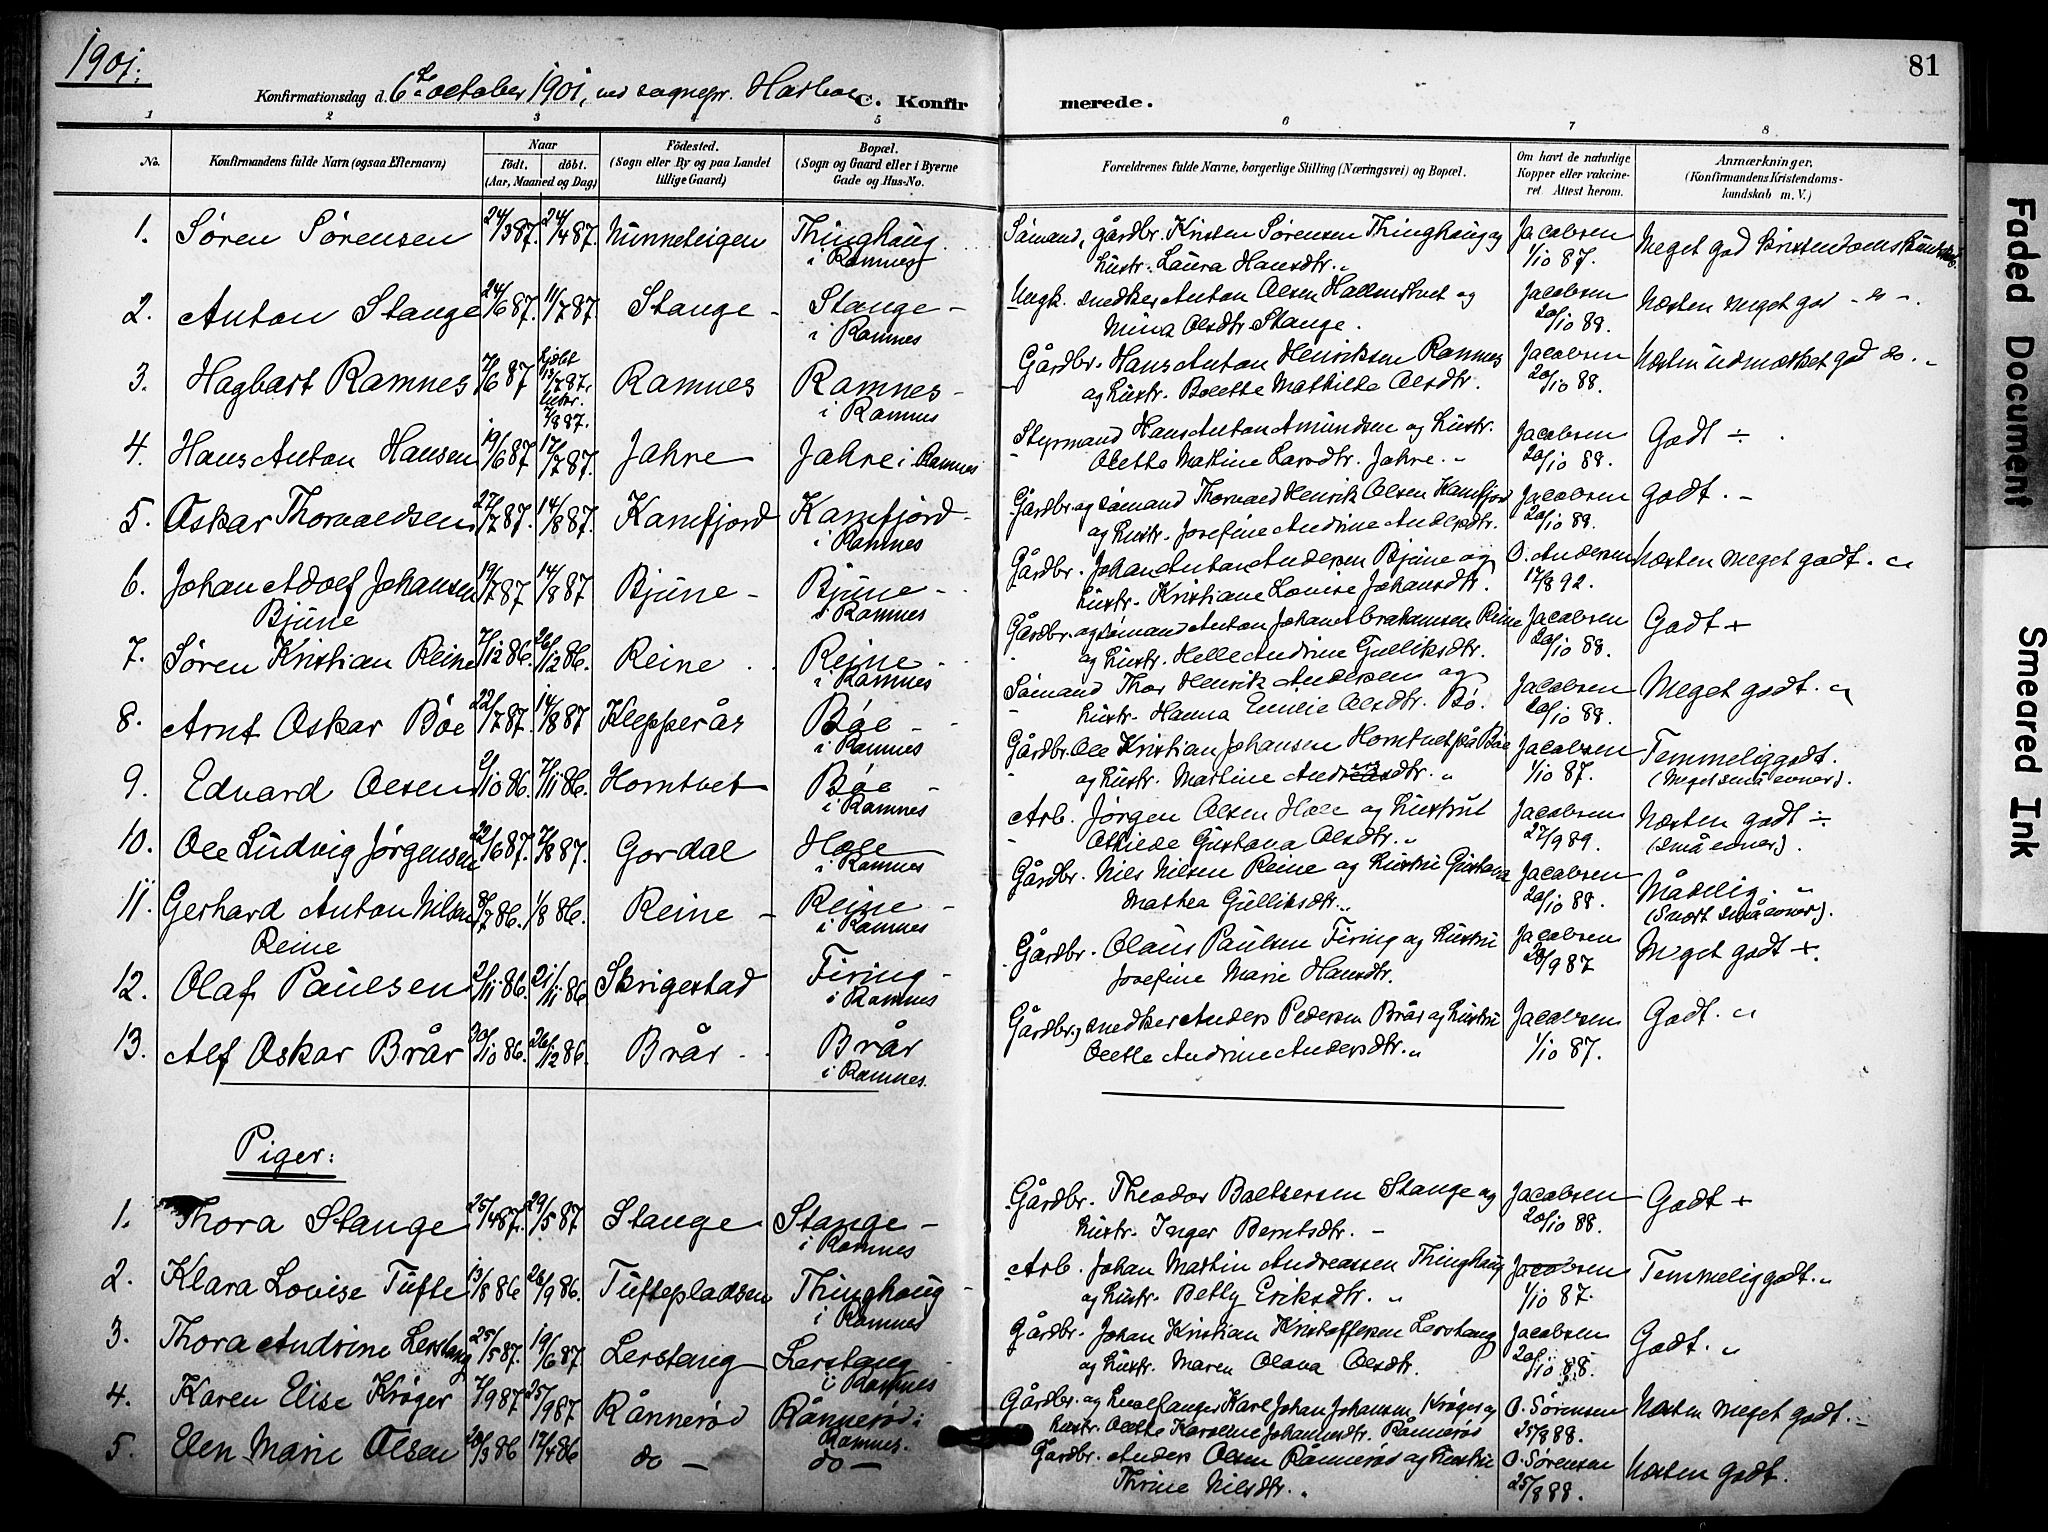 1901.
Konfirmationsdag d. 6te october 1901, ved sognepr. C. Konfirmerede.
81
1 2 3 4 5 6 7 8
No. Konfirmandens fulde Navn (ogsaa Efternavn) Naar födt. döbt. (Aar, Maaned og Dag) Födested. (Sogn eller By og paa Landet tillige Gaard) Bopæl. (Sogn og Gaard eller i Byerne Gade og Hus-No. Forældrenes fulde Navne, borgerlige Stilling (Næringsvei) og Bopæl. Om havt de naturlige Kopper eller vakcineret. Attest herom. Anmærkninger, (Konfirmandens Kristendomskundskab m. V.)
1. Søren Sørensen 24/3 87. 24/4 87. Nunneteigen Thinghaug i Ramnes Sømand, gårdbr. Kristen Sørensen Thinghaug og hustr. Laura Hansdtr. „ Jacobsen 1/10 87. Meget god kristendomskundskab.
2. Anton Stange 24/6 87. 11/7 87. Stange - Stange - i Ramnes Ungk. snedker Anton Olsen og Mina Olsdtr. Stange. Jacobsen 20/10 88. Næsten meget god - do -.
3. Hagbart Ramnes 7/6 87 hjdbt 13/7 87. 7/8 87. Ramnes Ramnes - i Ramnes Gårdbr. Hans Anton Henriksen Ramnes og hustr. Bolette Mathilde Olsdtr. Jacobsen 20/10 88. Næsten udmærket god do. „
4. Hans Anton Hansen 19/6 87 17/7 87. Jahre Jahre i Ramnes Styrmand Hans Anton Amundsen og hustr. Olette Matine Larsdtr. Jahre. „ Jacobsen 20/10 88. Godt ÷
5. Oskar Thorvaldsen 27/7 87. 14/8 87. Kamfjord Kamfjord - i Ramnes Gårdbr. og sømand Thorvald Henrik Olsen Kamfjord og hustr. Josefine Andrine Andersdtr. Jacobsen 20/10 88. Godt. -
6. Johan Adolf Johansen Bjune 19/7 87 14/8 87 Bjune - Bjune - i Ramnes Gårdbr. Johan Anton Andersen Bjune og hustr. Kristiane Lovise Johansdtr. O. Andersen 17/8 92. Næsten meget godt. „
7. Søren Kristian Reine 7/12 86. 26/12 86. Reine Reine - i Ramnes Gårdbr. og sømand Anton Johan Abrahamsen Reine og hustr. Helle Andrine Gulliksdtr. Jacobsen 20/10 88. Godt +
8. Arnt Oskar Bøe 22/7 87. 14/8 87 Klepperås Bøe - i Ramnes Sømand Thor Henrik Andersen og hustr. Hanna Emilie Olsdtr. Bø. Jacobsen 20/10 88. Meget godt. „
9. Edvard Olsen 2/10 86. 7/11 86. Homtvet Bøe - i Ramnes Gårdbr. Ole Kristian Johansen Homtvet på Bøe og hustr. Martine Jacobsen 1/10 87. Temmelig godt. (Meget små evner).
10. Ole Ludvig Jørgensen 22/6 87. 7/8 87. Gordal Hole i Ramnes Arb. Jørgen Olsen Hole og hustru Gustava Olsdtr. „ Jacobsen 27/9 89. Næsten godt ÷ (små evner).
11. Gerhard Anton Nilsen Reine 8/7 86. 1/8 86. Reine - Reine - i Ramnes Gårdbr. Nils Nilsen Reine og hustru Gustava Mathea Gulliksdtr. „ Jacobsen 20/10 88. Mådelig. „ (Svært små evner).
12. Olaf Paulsen 2/11 86. 21/11 86 Skrigestad Firing - i Ramnes Gårdbr. Olaus Paulsen Firing og hustru Josefine Marie Hansdtr. Jacobsen 28/9 87 Meget godt +.
13. Alf Oskar Brår 30/10 86. 26/12 86. Brår. Brår i Ramnes. Gårdbr., snedker Anders Pedersen Brår og hustru Olette Andrine Andersdtr. „ Jacobsen 1/10 87. Godt. „
Piger:
1. Thora Stange 25/4 87. 29/5 87. Stange Stange - i Ramnes Gårdbr. Theodor Baltsersen Stange og hustr. Inger Berntsdtr. - Jacobsen 20/10 88. Godt +
2. Klara Lovise Tufte 13/8 86 26/9 86. Tuftepladsen Thinghaug - i Ramnes Arb. Johan Martin Andreassen Thinghaug og hustr. Betty Eriksdtr. „ Jacobsen 1/10 87. Temmelig godt. „
3. Thora Andrine Lerstang 25/5 87. 19/6 87. Lerstang Lerstang i Ramnes Gårdbr. Johan Kristian Kristoffersen Lerstang og hustr. Maren Olava Olsdtr. Jacobsen 20/10 88. Godt. „
4. Karen Elise Krøger 7/9 87 25/9 87 Rånnerød Rånnerød i Ramnes. Gårdbr. og hvalfanger Karl Johan Johansen Krøger og hustr. Olette Karoline Johannesdtr. Rånnerød O. Sørensen 25/8 88. Næsten meget godt. -
5. Elen Marie Olsen 20/3 86 17/4 86 do - do - Gårdbr. Anders Olsen Rånnerød og hustru Thrine Nilsdtr. „ O. Sørensen 25/8 88. Næsten godt.
Faded Document
Smeared Ink